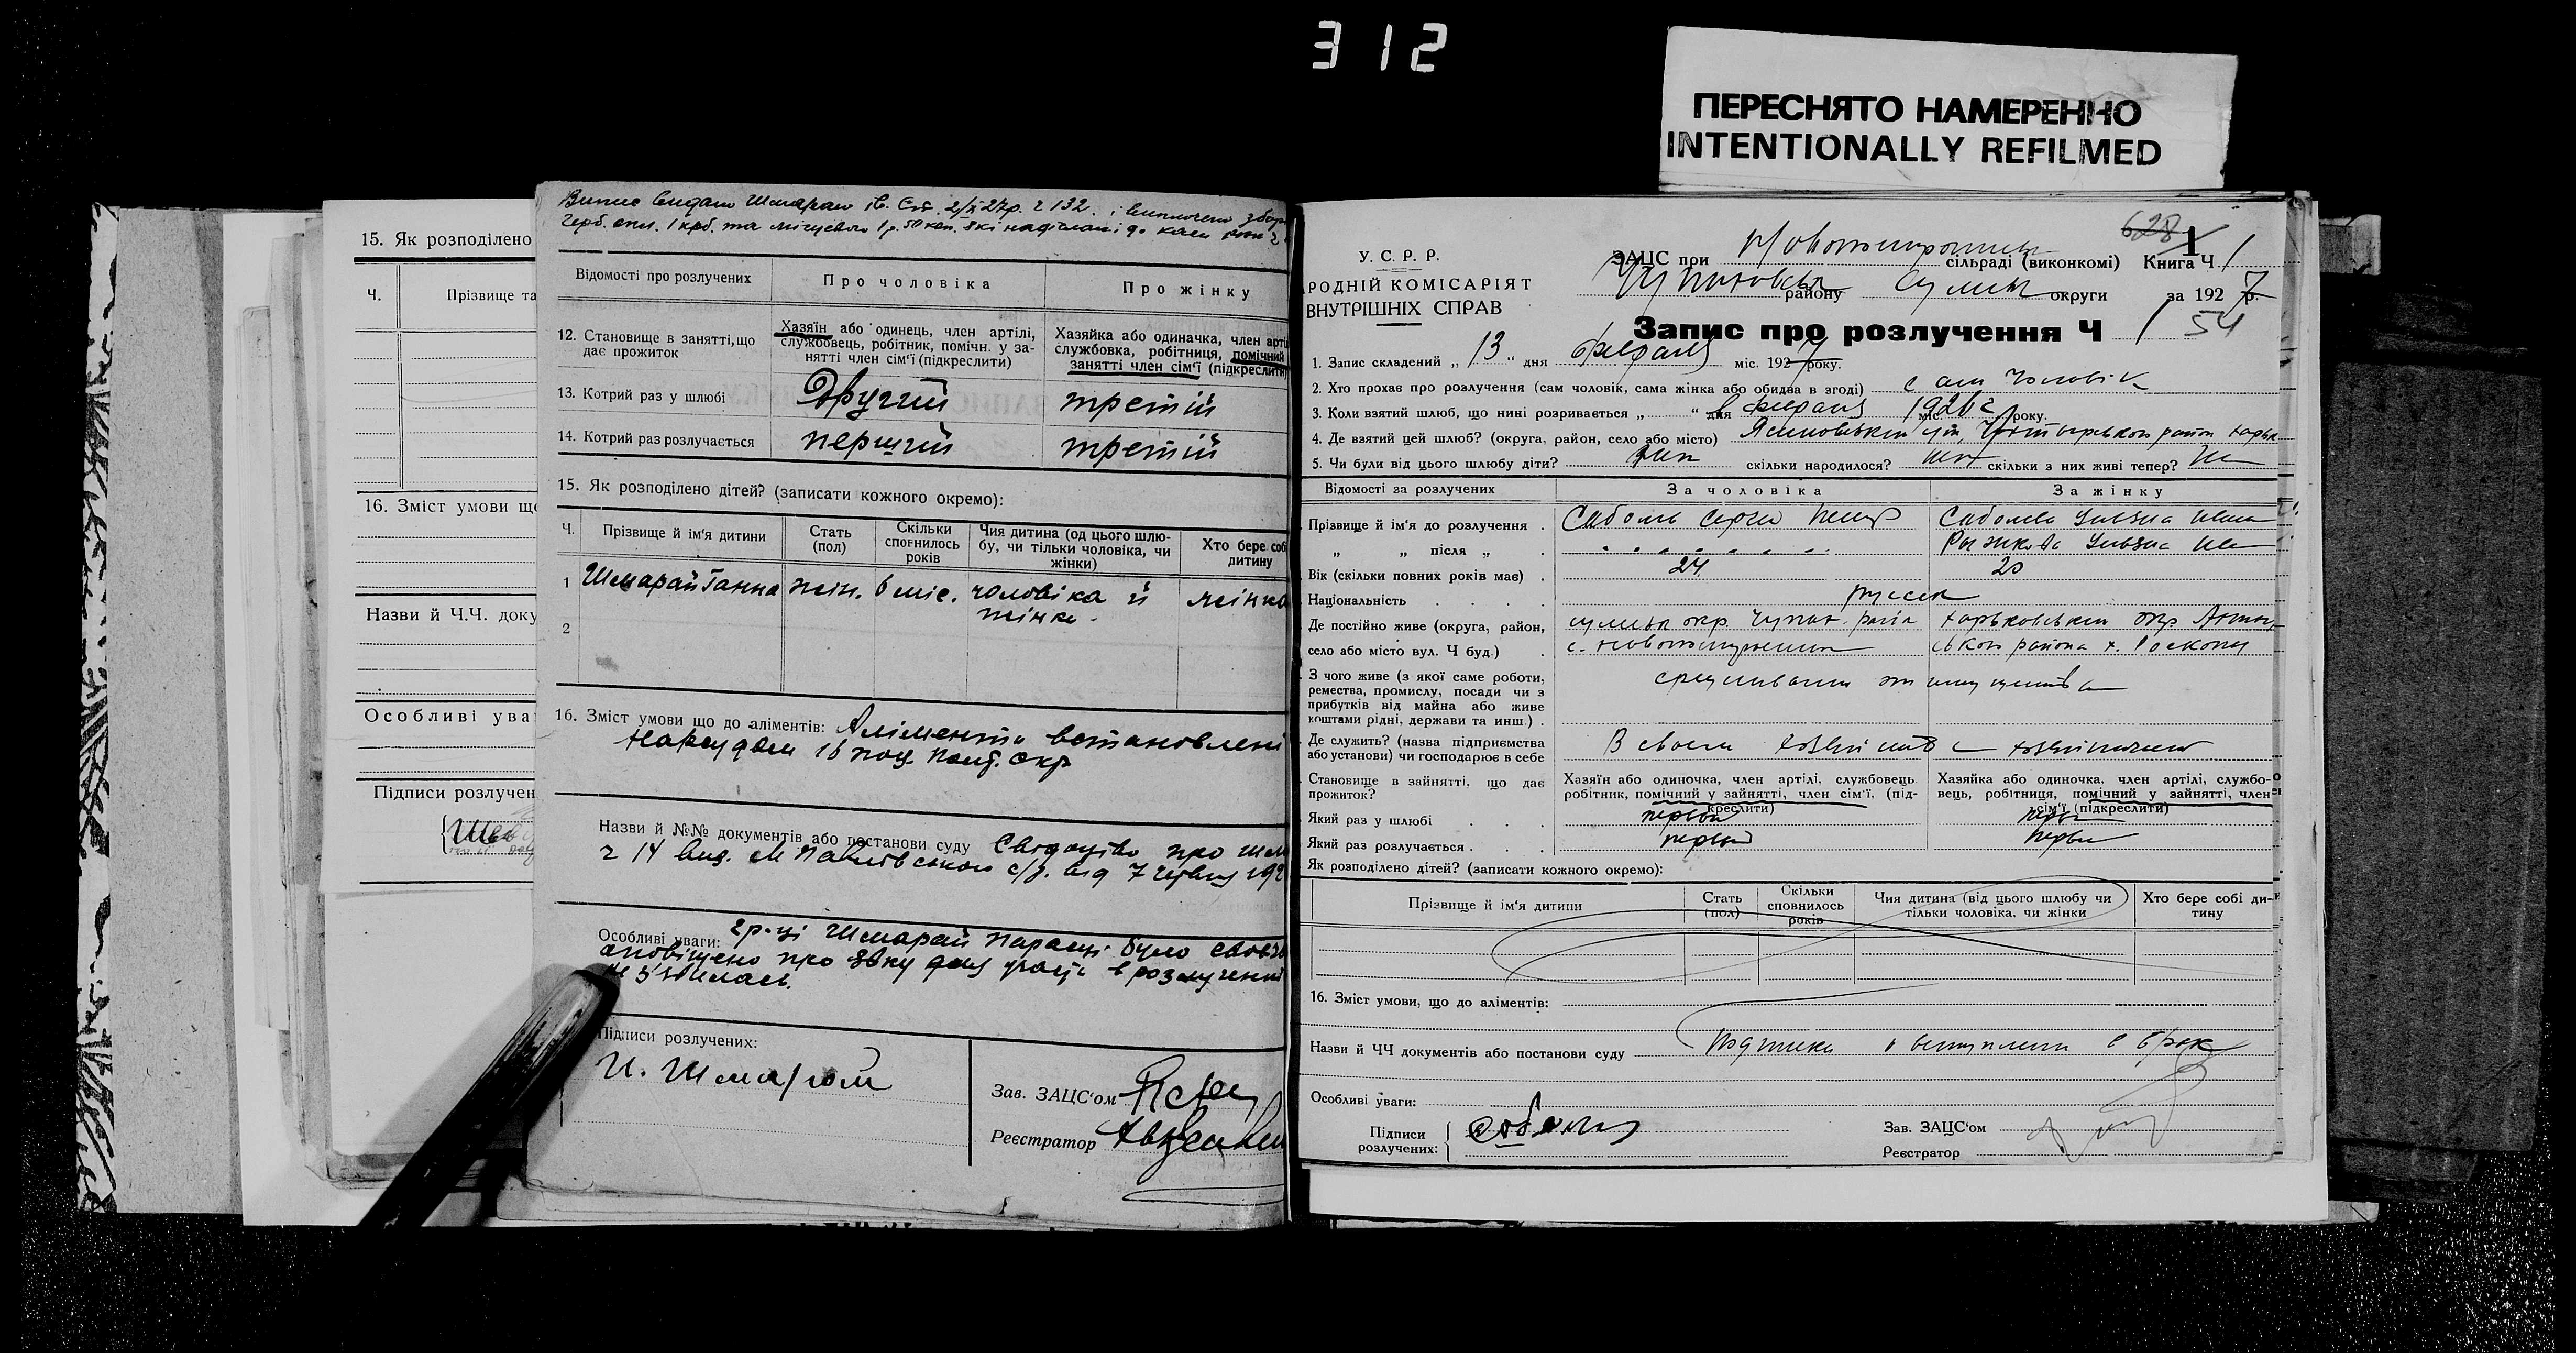 312
ПЕРЕСНЯТО НАМЕРЕННО
INTENTIONALLY REFILMED
15. Як розподілено
Ч. Прізвище та
16. Зміст умови що
Назви й Ч.Ч. доку
Особливі ува
Підписи розлучен
Випис видано Шмараю Ів. Ст. 2/X 27р. ч 132. і виплочено збор
Герб. опл. 1 крб. та місцевого 1 р. 50 коп. які надіслані до каси
Відомості про розлучених Про чоловіка Про жінку
12. Становище в занятті, що дає прожиток
Хазяїн або одинець, член артілі, службовець, робітник, помічн. у занятті член сім'ї (підкреслити)
Хазяйка або одиначка, член арті службовка, робітниця, помічний занятті член сім'ї (підкреслити)
13. Котрий раз у шлюбі Другий третій
14. Котрий раз розлучається перший третій
15. Як розподілено дітей? (записати кожного окремо):
Ч. Прізвище й ім'я дитини Стать (пол) Скільки сповнилось років Чия дитина (од цього шлюбу, чи тільки чоловіка, чи жінки) Хто бере собі дитину
1 Шмарай Ганна жін. 6 міс. чоловіка й жінки. жінка
2
16. Зміст умови що до аліментів: Аліменти встановлені
Нарсудом 16
Назви й №№ документів або постанови суду Свідоцтво про шлю
ч 14 вид. М Павлівською с/р. від 7 червня 192
Особливі уваги: гр-ці Шмарай Парасці було
оповіщено про явку для участі в розлученні
не з'явилась.
Підписи розлучених:
И. Шмарай
Зав. ЗАЦС'ом
Реєстратор
У. С. Р. Р.
РОДНІЙ КОМІСАРІЯТ
ВНУТРІШНІХ СПРАВ
628 1
ЗАЦС при сільраді (виконкомі) Книга Ч 1
району Сумськ округи за 1927 р.
Запис про розлучення Ч 1 54
1. Запис складений „ 13 “ дня февраля міс. 1927 року.
2. Хто прохає про розлучення (сам чоловік, сама жінка або обидва в згоді) сам чоловік
3. Коли взятий шлюб, що нині розривається „ “ дня февраля міс. 1926 г року.
4. Де взятий цей шлюб? (округа, район, село або місто)
5. Чи були від цього шлюбу діти? скільки народилося? скільки з них живі тепер?
Відомості за розлучених За чоловіка За жінку
Прізвище й ім'я до розлучення . Соболь Сергей Петр Соболева
„ „ після „ . Рыжкова
Вік (скільки повних років має) . 24 20
Національність . . . . русск
Де постійно живе (округа, район, село або місто вул. Ч буд.) .
З чого живе (з якої саме роботи, ремества, промислу, посади чи з прибутків від майна або живе коштами рідні, держави та инш.) .
Де служить? (назва підприємства або установи) чи господарює в себе В своем
Становище в зайнятті. що дає прожиток?
Хазяїн або одиночка, член артілі, службовець робітник, помічний у зайнятті, член сім'ї, (підкреслити)
Хазяйка або одиночка, член артілі, службовець, робітниця, помічний у зайнятті, член сім'ї (підкреслити)
Який раз у шлюбі . . . первый первы
Який раз розлучається . . . первый первы
Як розподілено дітей? (записати кожного окремо):
Прізвище й ім'я дитини Стать (пол) Скільки сповнилось років Чия дитина (від цього шлюбу чи тільки чоловіка, чи жінки Хто бере собі дитину
16. Зміст умови, що до аліментів:
Назви й ЧЧ документів або постанови суду Подписка о вступлени в брак
Особливі уваги:
Підписи розлучених: Соболь
Зав. ЗАЦС'ом
Реєстратор